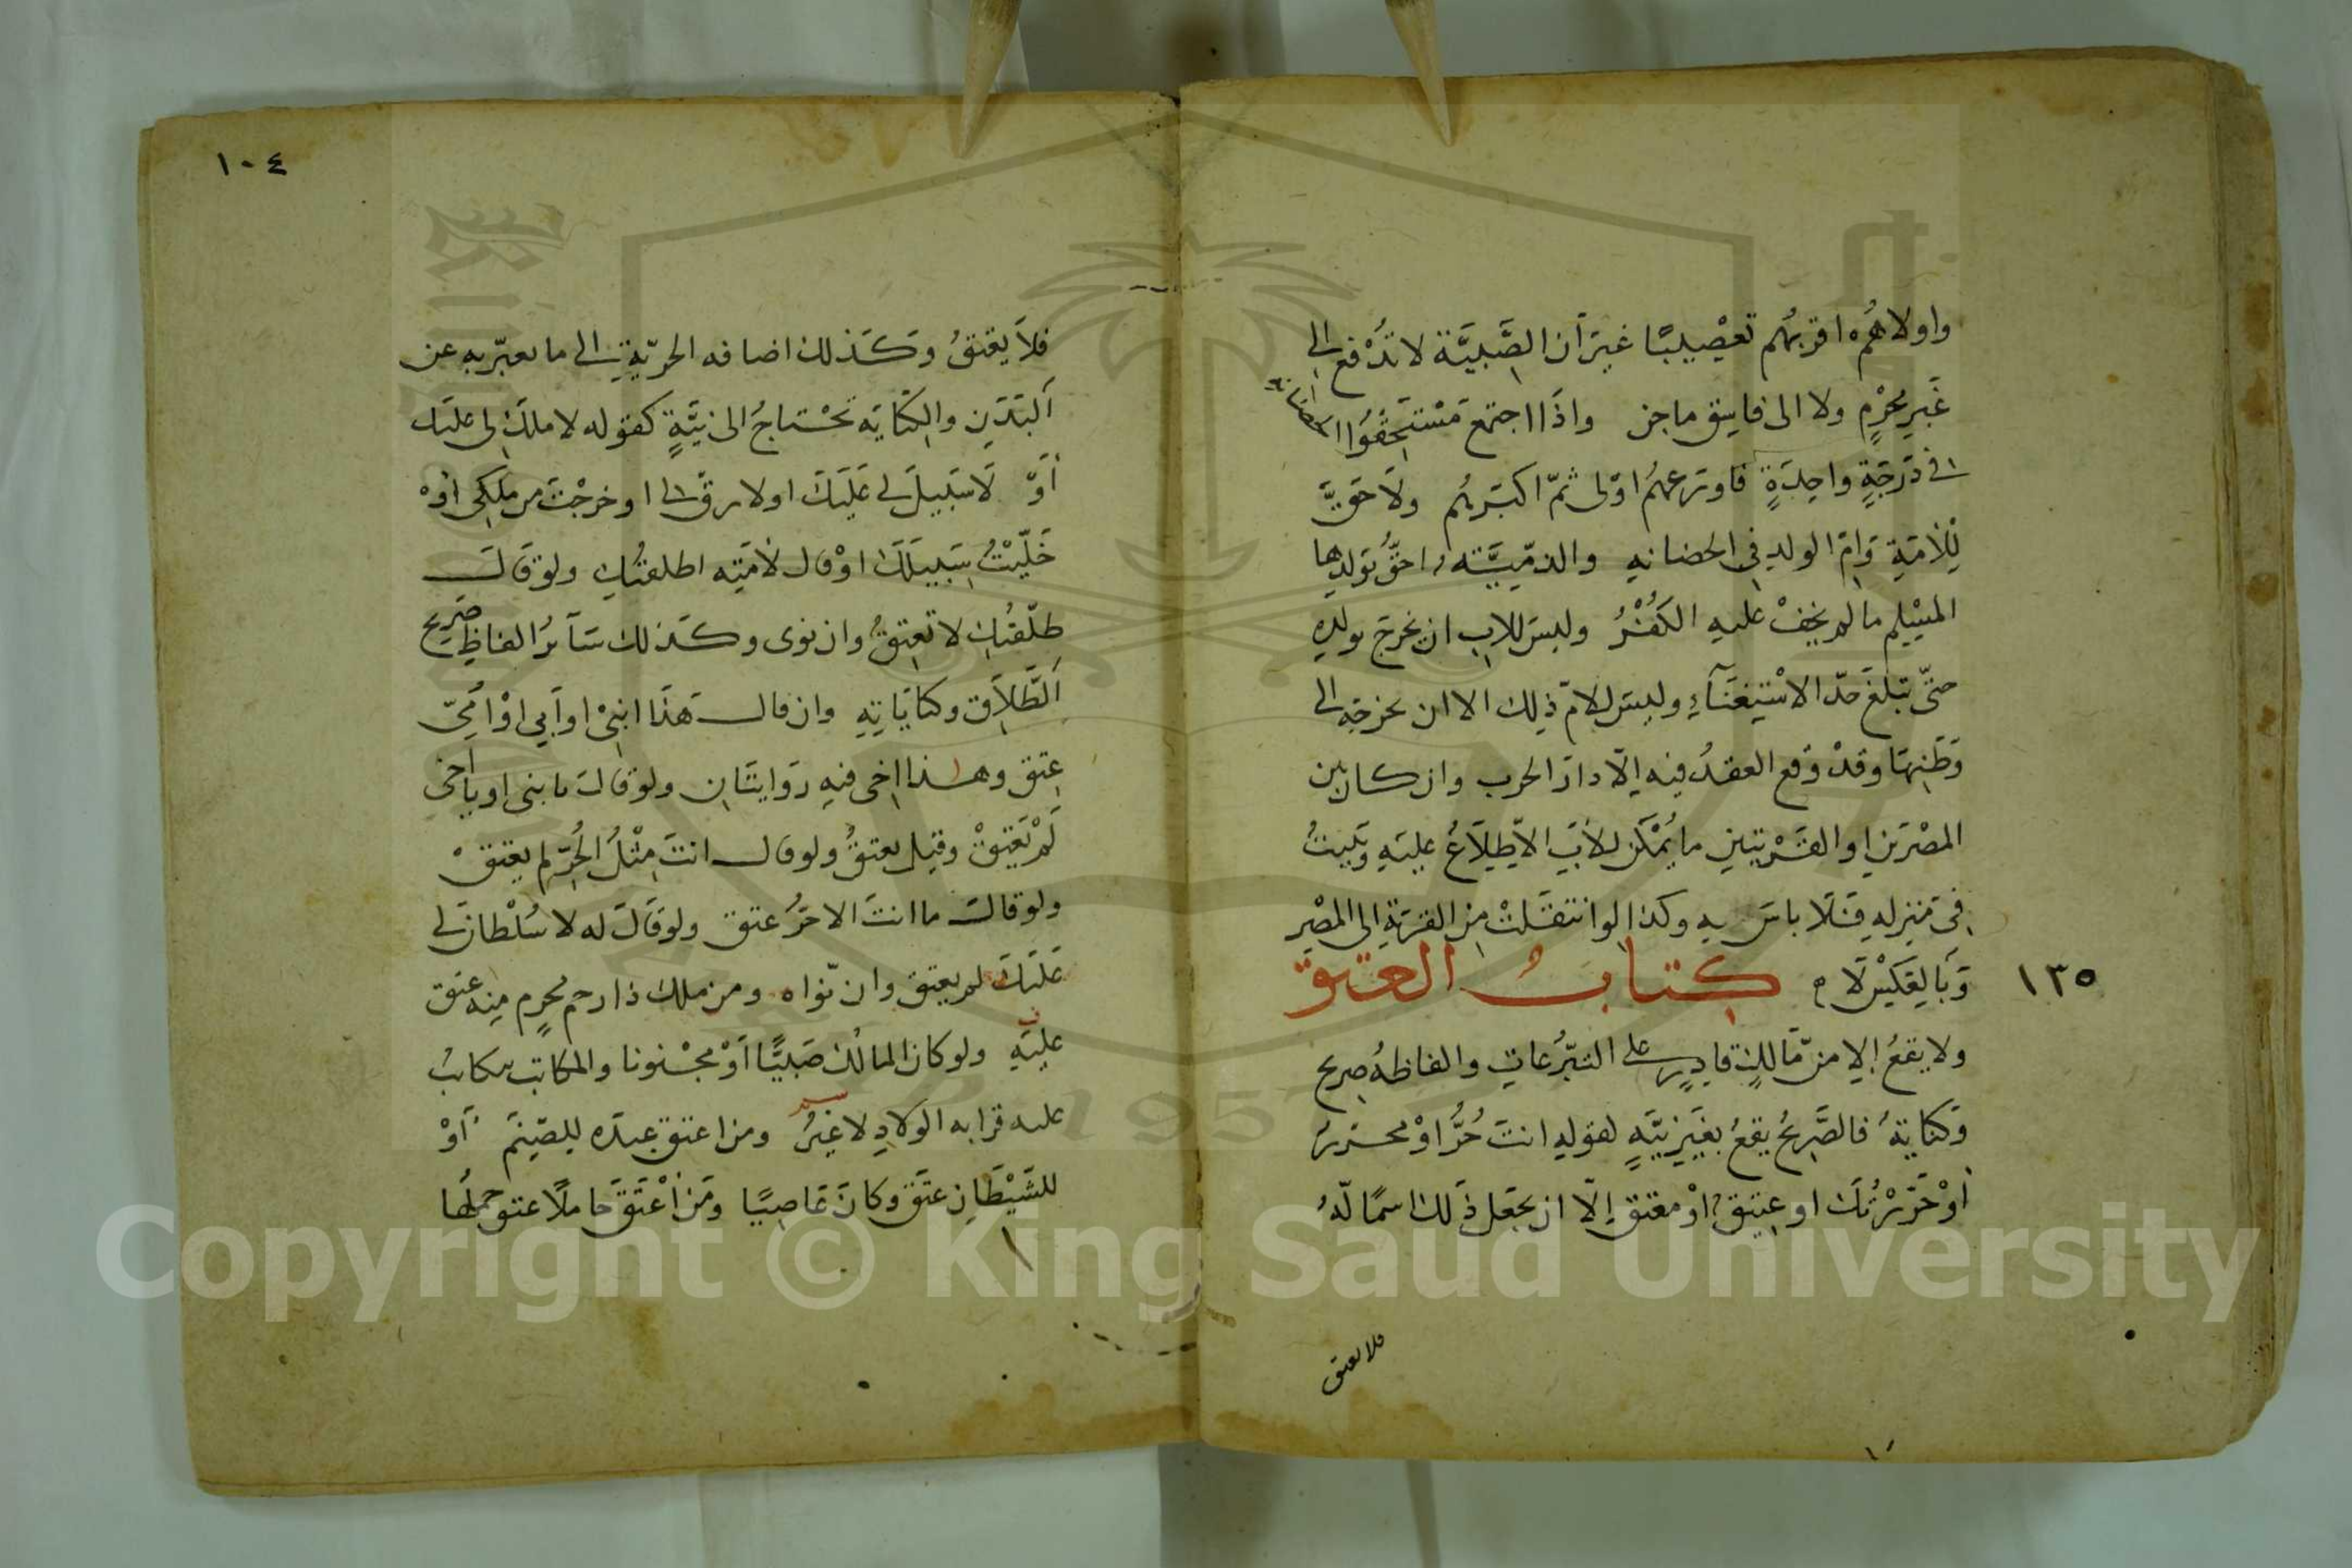 واولاهم اقربهم تعصيبًا غير أن الصَّبيَّة لا تُدْفع الى
غَيرِ محرْمٍ ولا الى فاسق ماجن واذا اجتمع مسْتَحِقُّوا الحضانة
في دَرَجَةٍ واحِدَةٍ فاورعهُم اوْلى ثمّ اكبرهُم ولَا حَقَّ
لِلأمَةِ وَامّ الولدِ في الحضانهِ والذمّيَّة احَقُّ بوَلدِها
المسْلِم ما لم يخفْ عليهِ الكفْرُ وليسَ للابِ ان يخرجَ بولدِهِ
حتّى تبلغَ حدّ الاسْتِغنَآءِ وليسَ للامّ ذلك الا ان تخرجَه الى
وَطَنِهَا وقدْ وَقع العقدُ فيه اِلّا دارَ الحرب وان كان بين
المصْرَين او القَرْيتين ما يُمْكن للأبِ الاِطِّلاَعُ عليهِ وَيَبيتُ
في مَنزِلهِ فَلَا باسَ بهِ وكذا لو انتقَلتْ من القريَةِ الى المصْرِ
وَبالعَكْسِ لَا ه كتابُ العتق
١٣٥
ولا يقعُ اِلا من مَّالكٍ قادِرٍ على التبرُّعاتِ والفاظهُ صريح
وَكنَايَةٌ فالصَّريحُ يقعُ بغيرِ نيَّةٍ كقولهِ انتَ حُرٌّ اوْ محررٌ
اوْ حَرَّرْتُكَ او عتِيقٌ اوْ معتق اِلّا ان يجعَل ذَلكَ اسمًا لّهُ
فلا يعتق
١٠٤
فلاَ يعْتقُ وَكَذلك اضافه الحريّةِ الى ما يعبّر به عن
اَلبَدَنِ والكنَايَه تحْتاجُ الى نيَّةٍ كقوله لا ملكَ لى عليَك
أوْ لَا سَبيلَ لى عَلَيكَ او لا رقّ لى او خرجْتَ من ملكِى اوْ
خَلّيْتُ سَبيلَكَ اوْ قال لأمَتِه اطلقتُكِ ولوْ قَال
طلّقتُكِ لا تعتِقُ وان نوى وكَذلك سَآئرُ الفاظِ صَريح
اَلطّلاَقِ وكنايَاتِهِ وان قال هَذَا ابنِىْ او اَبي اوْ اُمِّي
عتِق وهذا اخى فيهِ رَوايتَان ولوْ قال يا بنى او يا اخى
لَمْ يَعْتِقْ وقيل يعتقُ ولو قال انتَ مِثْلُ الحُرِّ لم يعتقْ
ولو قال ما انتَ الا حُرُّ عتق ولوْ قَالَ له لا سُلْطانَ لى
عَليَكَ لم يعتق وان نّواه ومن ملك ذا رحم محرِم منِه عتق
عليَهِ ولو كان المالكُ صَبيًّا اَوْ مجْنونا والمكاتب يتكاتبُ
عليه قرابه الوِلادِ لا غيرُ ومن اعتق عبدَه للصّنِم اَوْ
للشَيْطَانِ عتَق وكانَ عَاصِيًا ومَن اَعْتَقَ حَامِلاً عتق حملُها